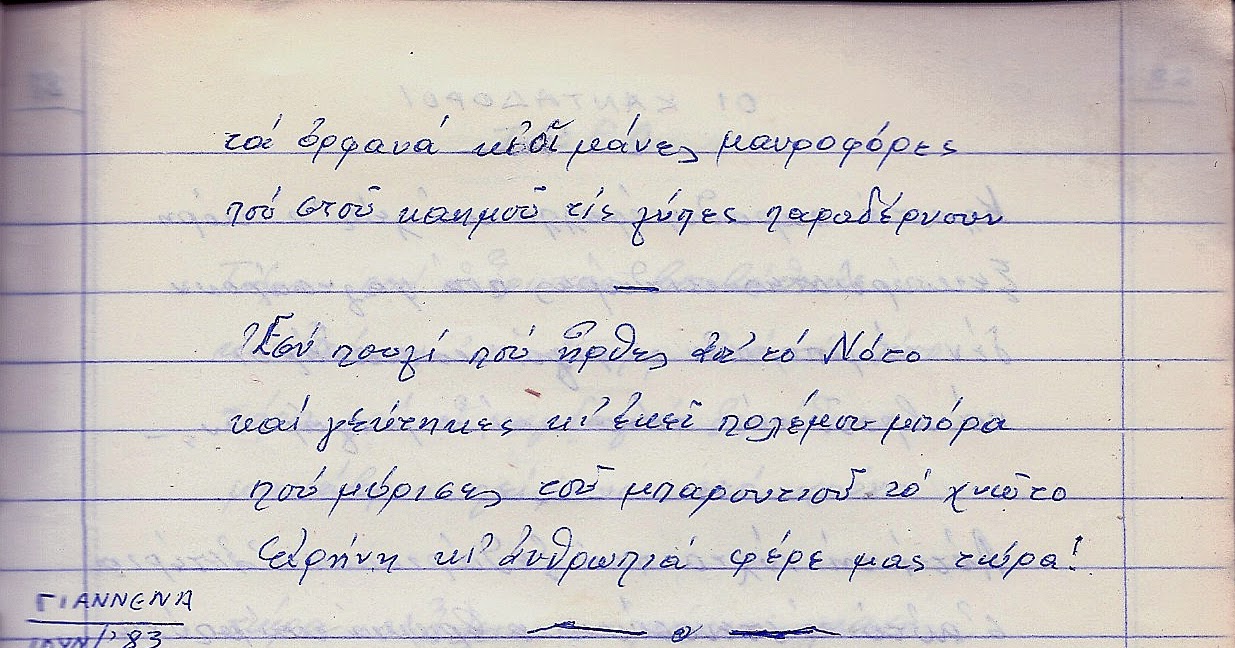 τά ὀρφανά κι οἱ μάνες μαυροφόρες
πού στοῦ καημοῦ τίς λύπες παραδέρνουν
Ἐσύ πουλί πού ἦρθες ἀπ' τό Νότο
καί γεύτηκες κι' ἐκεῖ πολέμου μπόρα
πού μύρισες τοῦ μπαρουτιοῦ τό χνῶτο
Εἰρήνη κι' ἀνθρωπιά φέρε μας τώρα!
ΓΙΑΝΝΕΝΑ
ΙΟΥΝ/'83